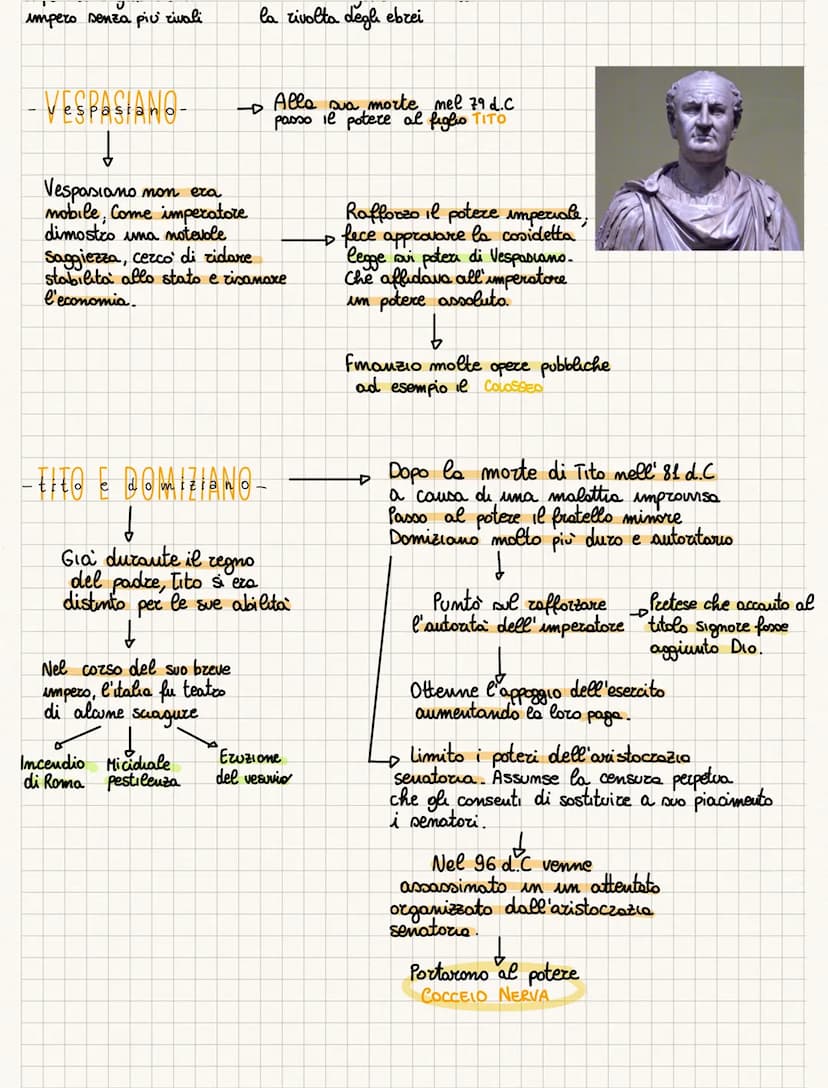 impero senza più rivali
la rivolta degli ebrei
- VESPASIANO -
vespasiano
Alla sua morte nel 79 d.C
passo il potere al figlio TITO
Vespasiano non era
nobile, Come imperatore
dimostro una notevole
saggiezza, cerco' di ridare
stabilita' allo stato e risanare
l'economia.
Rafforzo il potere imperiale,
fece approvare la cosidetta
legge sui poteri di Vespasiano.
Che affidava all'imperatore
un potere assoluto.
Finanzio molte opere pubbliche
ad esempio il COLOSSEO
- TITO E DOMIZIANO -
tito e domiziano
Gia' durante il regno
del padre, Tito si era
distinto per le sue abilita'
Nel corso del suo breve
impero, l'italia fu teatro
di alcune sciagure
Incendio
di Roma
Micidiale
pestilenza
Eruzione
del vesuvio
Dopo la morte di Tito nell' 81 d.C
a causa di una malattia improvvisa
Passo al potere il fratello minore
Domiziano molto più duro e autoritario
Punto' sul rafforzare
l'autorita' dell'imperatore
Pretese che accanto al
titolo signore fosse
aggiunto Dio.
Ottenne l'appoggio dell'esercito
aumentando la loro paga.
Limito i poteri dell'aristocrazia
senatoria. Assunse la censura perpetua
che gli consenti di sostituire a suo piacimento
i senatori.
Nel 96 d.C venne
assassinato in un attentato
organizzato dall'aristocrazia
senatoria.
Portarono al potere
COCCEIO NERVA